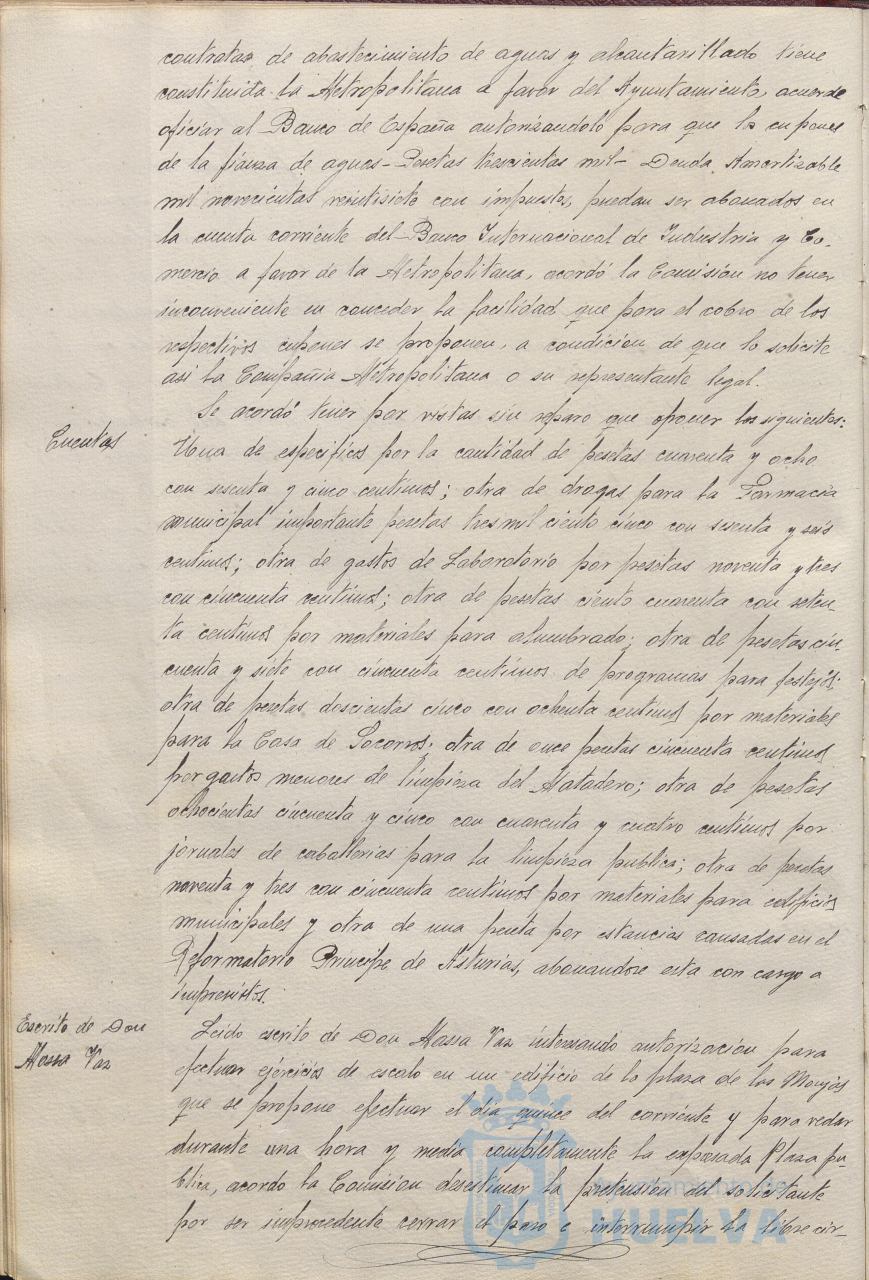 contratas de abastecimiento de aguas y alcantarillado tiene
constituida la Metropolitana a favor del Ayuntamiento, acuerde
oficiar al Banco de España autorizandolo para que los cupones
de la fianza de aguas - Pesetas trescientas mil - Deuda Amortizable
mil novecientas veintisiete con impuestos, puedan ser abonados en
la cuenta corriente del Banco Internacional de Industria y Co-
mercio a favor de la Metropolitana, acordó la Comisión no tener
inconveniente en conceder la facilidad que para el cobro de los
respectivos cupones se proponen, a condición de que lo solicite
asi la Compañia Metropolitana o su representante legal.
Cuentas
Se acordó tener por vistas sin reparo que oponer las siguientes:
Una de especificos por la cantidad de pesetas cuarenta y ocho
con sesenta y cinco centimos; otra de drogas para la Farmacia
municipal importante pesetas tres mil ciento cinco con sesenta y seis
centimos; otra de gastos de Laboratorio por pesetas noventa y tres
con cincuenta centimos; otra de pesetas ciento cuarenta con seten-
ta centimos por materiales para alumbrado; otra de pesetas cin-
cuenta y siete con cincuenta centimos de programas para festejos;
otra de pesetas doscientas cinco con ochenta centimos por materiales
para la Casa de Socorros; otra de once pesetas cincuenta centimos
por gastos menores de limpieza del Matadero; otra de pesetas
ochocientas cincuenta y cinco con cuarenta y cuatro centimos por
jornales de caballerias para la limpieza publica; otra de pesetas
noventa y tres con cincuenta centimos por materiales para edificios
municipales y otra de una peseta por estancias causadas en el
Reformatorio Principe de Asturias, abonandose esta con cargo a
imprevistos.
Escrito de Don
Massa Vaz
Leido escrito de Don Massa Vaz interesando autorización para
efectuar ejercicios de escalo en un edificio de la plaza de las Monjas
que se propone efectuar el dia quince del corriente y para vedar
durante una hora y media completamente la expresada Plaza pu-
blica, acordo la Comision desestimar la pretensión del solicitante
por ser improcedente cerrar el paso e interrumpir la libre cir-
Ayuntamiento de
HUELVA